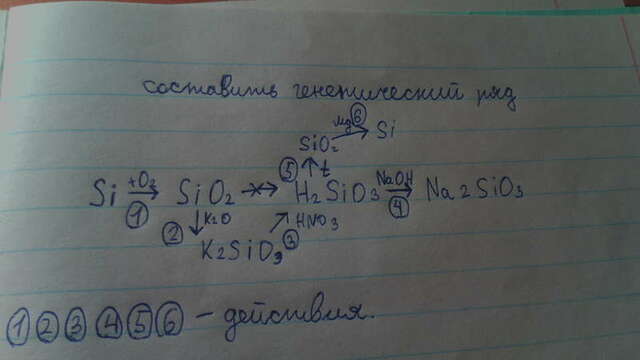 составить генетический ряд
SiO2 Mg ⑥ → Si
⑤ ↑ t
Si +O2 → ① SiO2 ↛ H2SiO3 NaOH → ④ Na2SiO3
② ↓ K2O ↗ HNO3
K2SiO3 ③
① ② ③ ④ ⑤ ⑥ – действия.